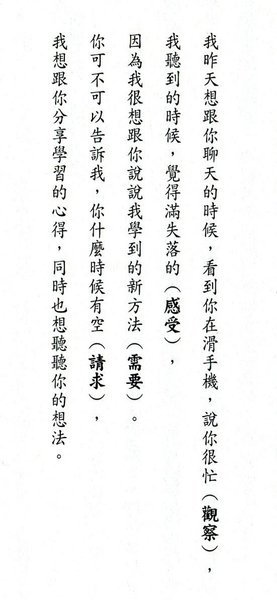 我昨天想跟你聊天的時候，看到你在滑手機，說你很忙（觀察），
我聽到的時候，覺得滿失落的（感受），
因為我很想跟你說說我學到的新方法（需要）。
你可不可以告訴我，你什麼時候有空（請求），
我想跟你分享學習的心得，同時也想聽聽你的想法。